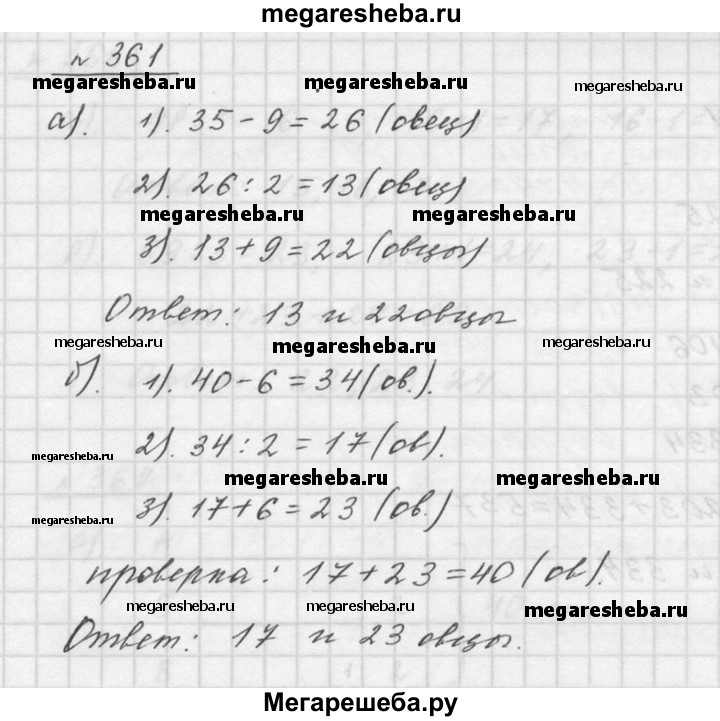 megaresheba.ru
№ 361
megaresheba.ru megaresheba.ru megaresheba.ru
а). 1). 35 - 9 = 26 (овец)
2). 26 : 2 = 13 (овец)
megaresheba.ru megaresheba.ru
3). 13 + 9 = 22 (овцы)
Ответ: 13 и 22 овцы
megaresheba.ru megaresheba.ru megaresheba.ru
б). 1). 40 - 6 = 34 (ов.).
2). 34 : 2 = 17 (ов).
megaresheba.ru
megaresheba.ru megaresheba.ru
3). 17 + 6 = 23 (ов.)
megaresheba.ru
проверка: 17 + 23 = 40 (ов).
megaresheba.ru megaresheba.ru megaresheba.ru
Ответ: 17 и 23 овцы.
Мегарешеба.ру